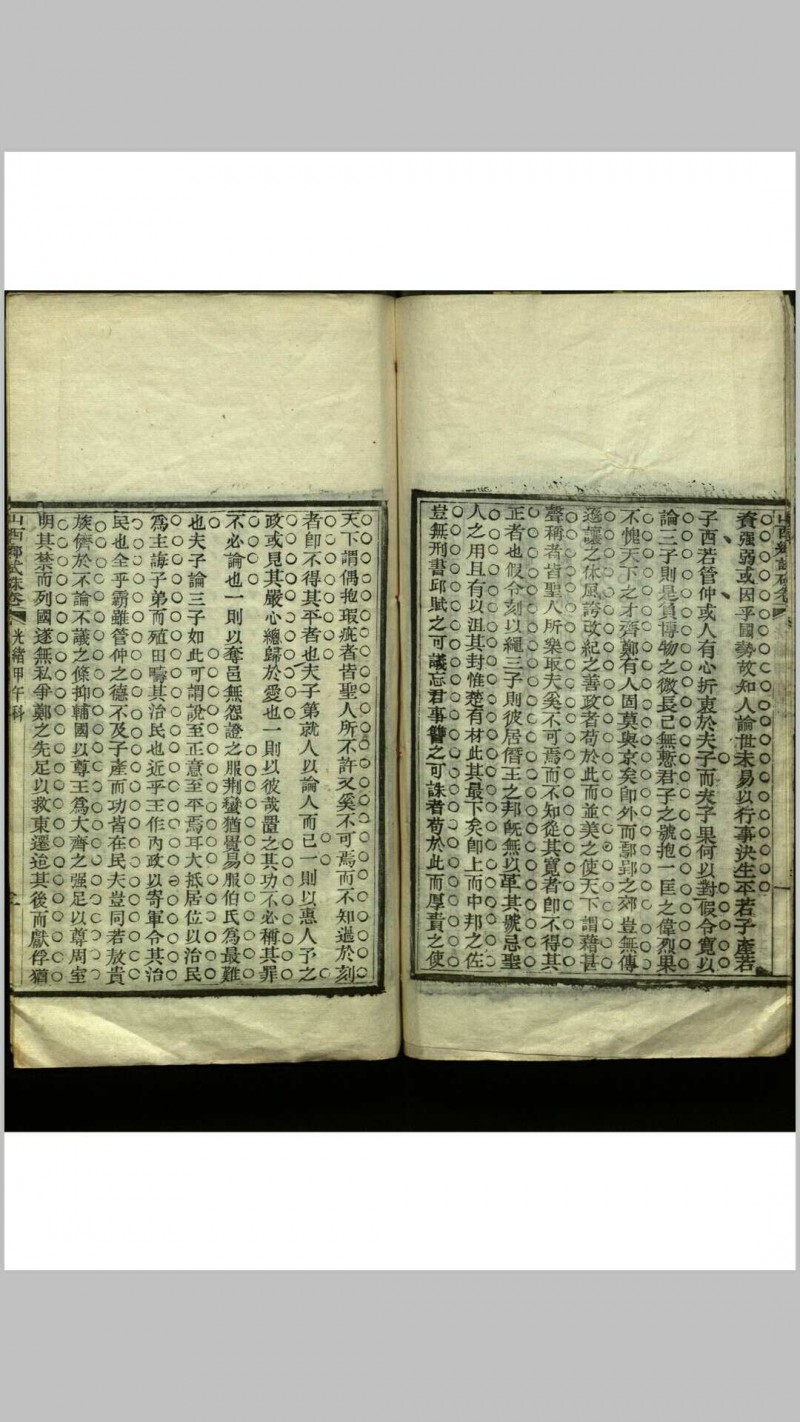 山西鄉試硃卷
資強弱或因乎國勢故知人論世未易以行事決生平若子產若
子西若管仲或人有心折衷於夫子而夫子果何以對假令寬以
論三子則是負博物之微長已無慙君子之號抱一匡之偉烈果
不愧天下之才齊鄭有人固莫與京矣卽外而鄢郢之郊豈無傳
遜讓之休風誇改紀之善政者苟於此而並美之使天下謂藉甚
聲稱者皆聖人所樂取夫奚不可焉而不知從其寬者卽不得其
正者也假令刻以繩三子則彼居僭王之邦旣無以革其號忌聖
人之用且有以沮其封惟楚有材此其最下矣卽上而中邦之佐
豈無刑書邱賦之可議忘君事讐之可誅者苟於此而厚責之使
天下謂偶抱瑕疵者皆聖人所不許又奚不可焉而不知過於刻
者卽不得其平者也夫子第就人以論人而已一則以惠人予之
政或見其嚴心總歸於愛也一則以彼哉置之其功不必稱其罪
不必論也一則以奪邑無怨證之服荆蠻猶覺易服伯氏為最難
也夫子論三子如此可謂說至正意至平焉耳大抵居位以治民
為主誨子弟而殖田疇其治民也近乎王作內政以寄軍令其治
民也全乎霸雖管仲之德不及子產而功皆在民夫豈同若敖貴
族儕於不論不議之條抑輔國以尊王為大齊之强足以尊周室
明其禁而列國遂無私爭鄭之先足以救東遷迨其後而獻俘猶
山西鄉試硃卷 光緒甲午科